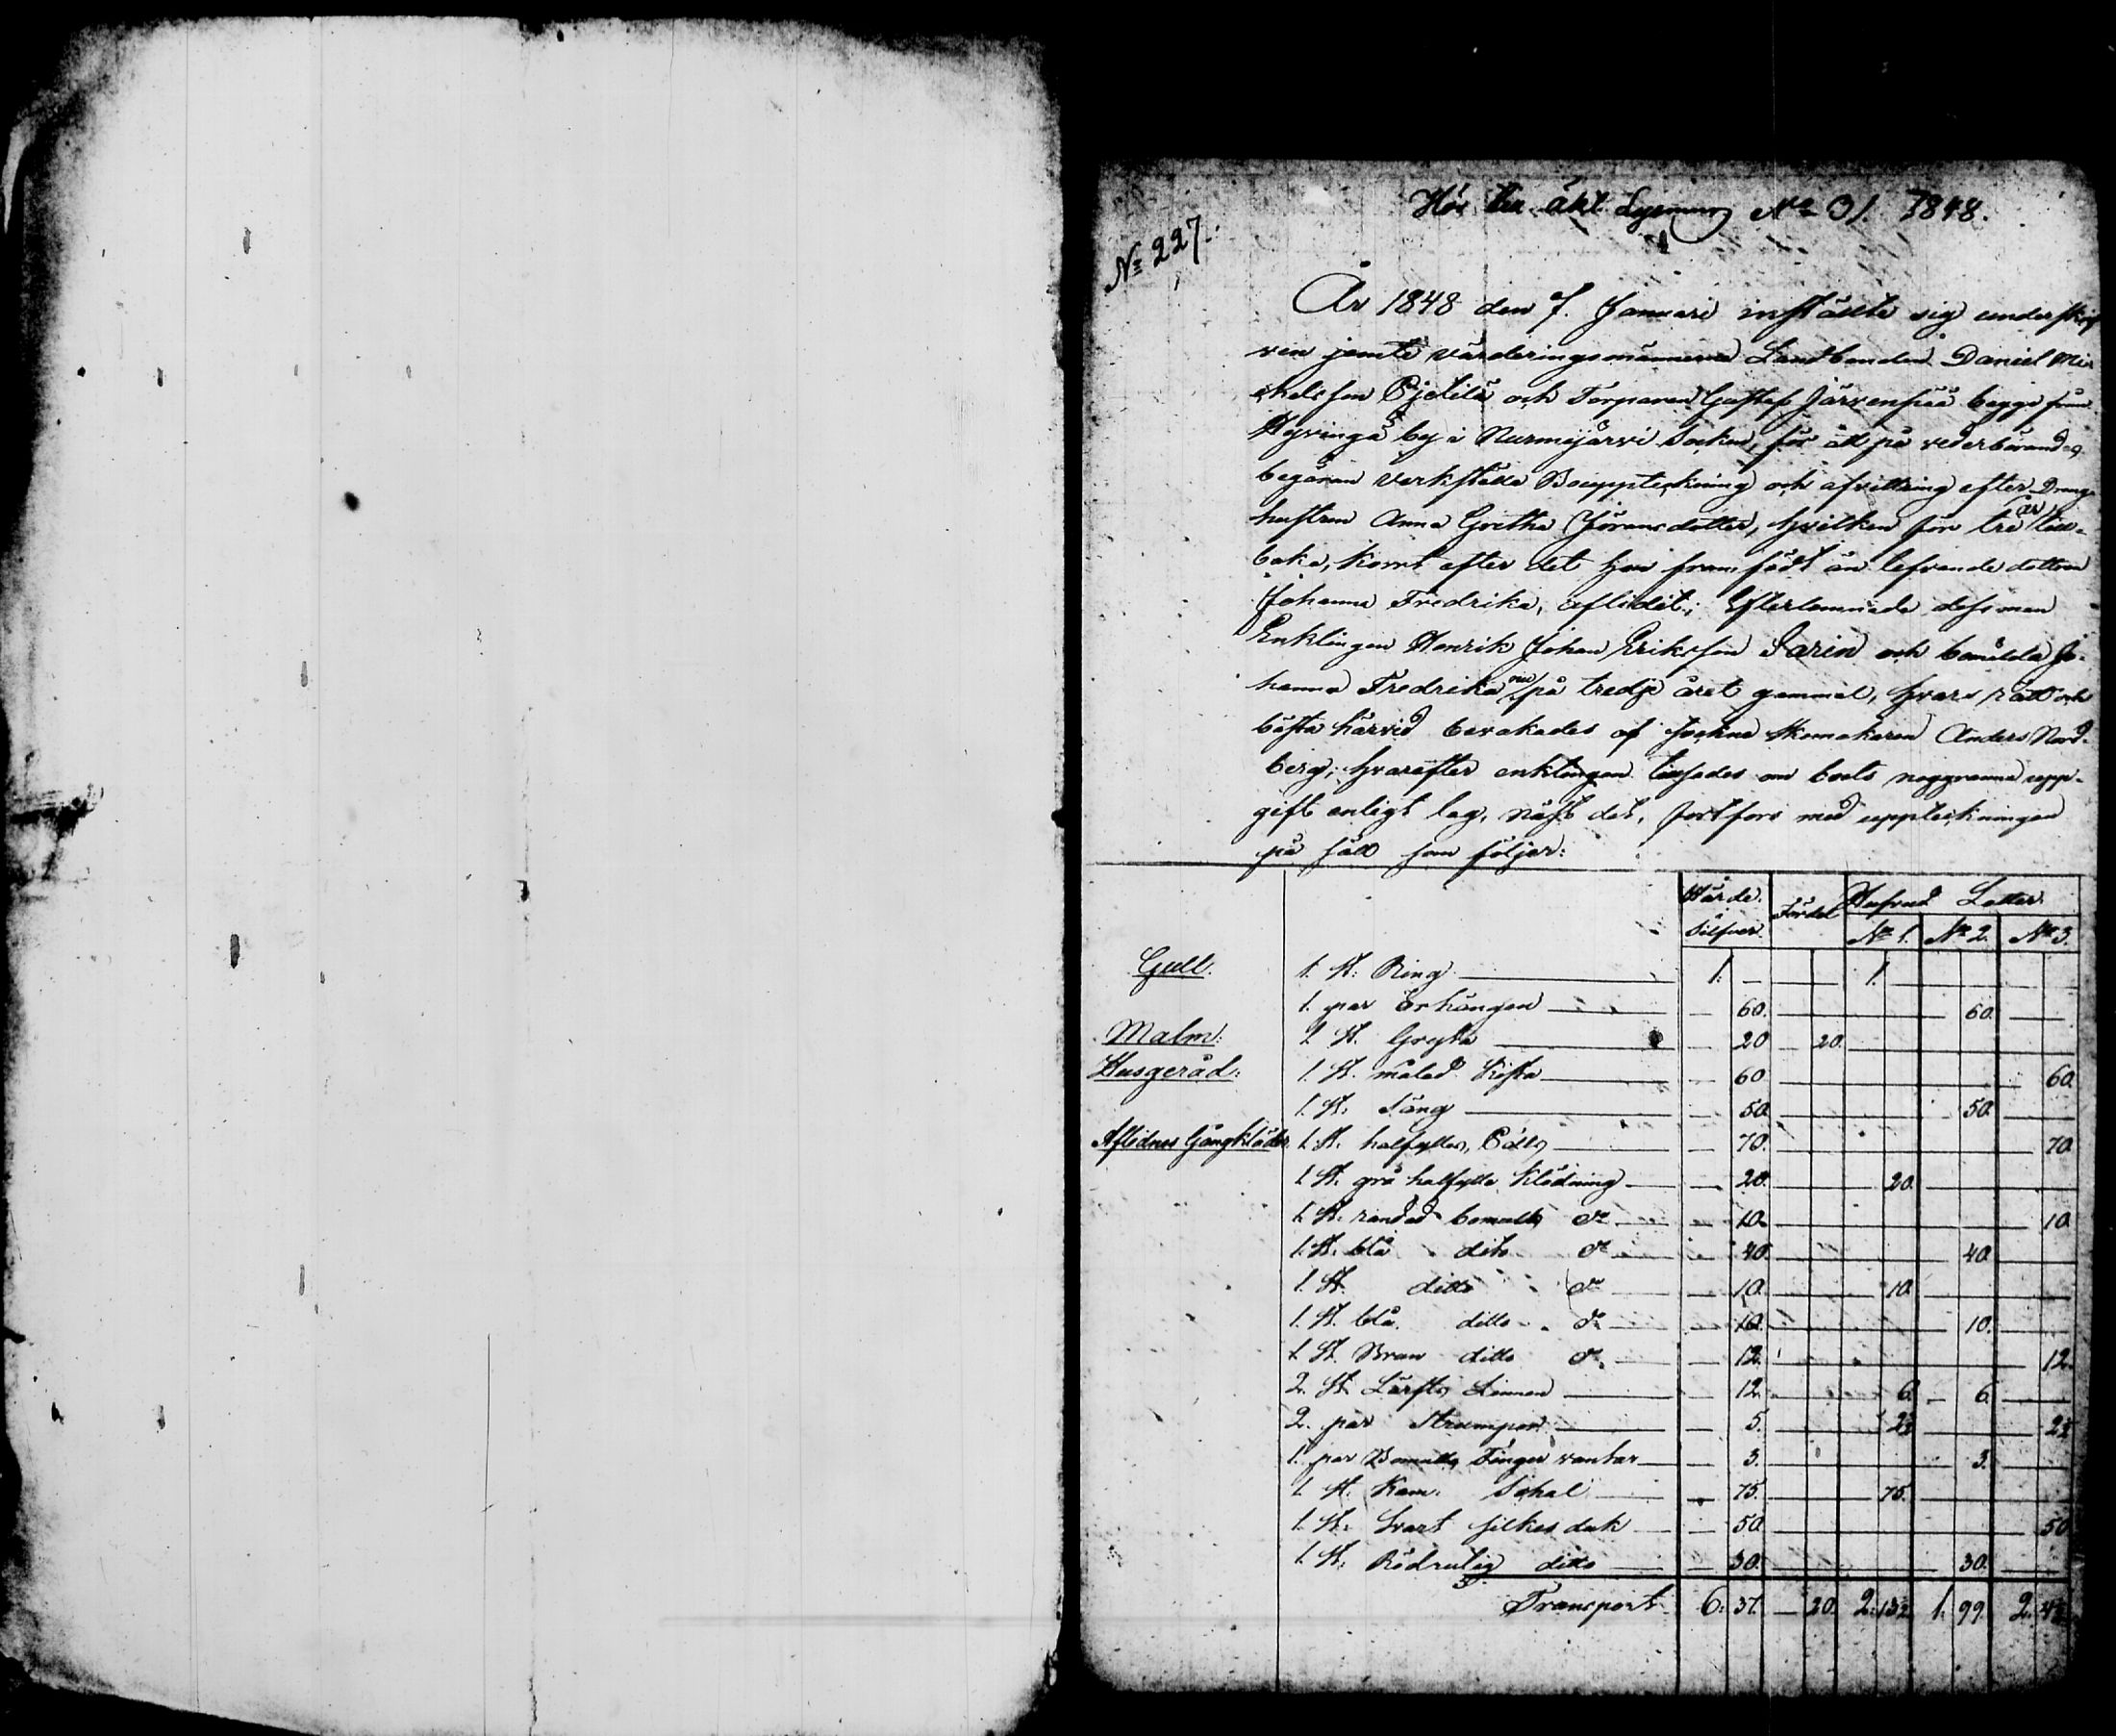 Hör till äkt. Lysning No 31. 1848.
No 227.
År 1848 den 7. Januari inställte sig underskrif
ven jemte värderingsmännerna Landbonden Daniel Mi-
chelsson Pjetilä och Torparen Gustaf Järvenpää begge från
Hyvinge by i Nurmijärvi Socken, för att på vederbörandes
begäran verkställa Bouppteckning och afvittring efter Drengs
hustrun Anna Gretha Göransdotter, hvilken för tre år till-
baka, kort efter det hon framfödt än lefvande dottren
Johanna Fredrika, aflidit; Efterlemnade dess man
Enklingen Henrik Johan Eriksson Sarin och bemälda Jo-
hanna Fredrika nu på tredje året gammal, hvars rätt och
bästa härvid bevakades af Sockne Skomakaren Anders Nord-
berg; hvarefter enklingen tillsades om boets noggranna upp-
gift enligt lag, näst det, fortfors med uppteckningen
på sätt som följer:
Värde. Silfver. Fördel Hufvud Lotter
No 1. No 2. No 3.
Gull. 1. St: Ring 1. — 1.
1. par Örhängen 60. 60.
Malm: 1 St. Gryta 20 20.
Husgeråd: 1. St. målad Kista 60 60.
1. St. Säng 50. 50.
Aflidnes Gångkläder. 1. St. halfylles, 70. 70.
1. St. grå halfylle Klädning 20. 20.
1. St. randad bomulls do 10. 10.
1. St. blå dito do 40. 40.
1. St. ditto do 10. 10.
1. St. blå ditto do 10. 10.
1 St. Brun ditto do 12. 12.
2. St Lärfts Linnen 12. 6. 6.
2. par Strumpor 5. 2½ 2½
1. par Bomulls Finger vantar 3. 3.
1 St. Kam. Schal 75. 75.
1. St. Svart silkes duk 50 50.
1. St. Rödrutig ditto 30. 30.
Transport 6: 37. — 20. 2: 13½ 1: 99. 2. 4½